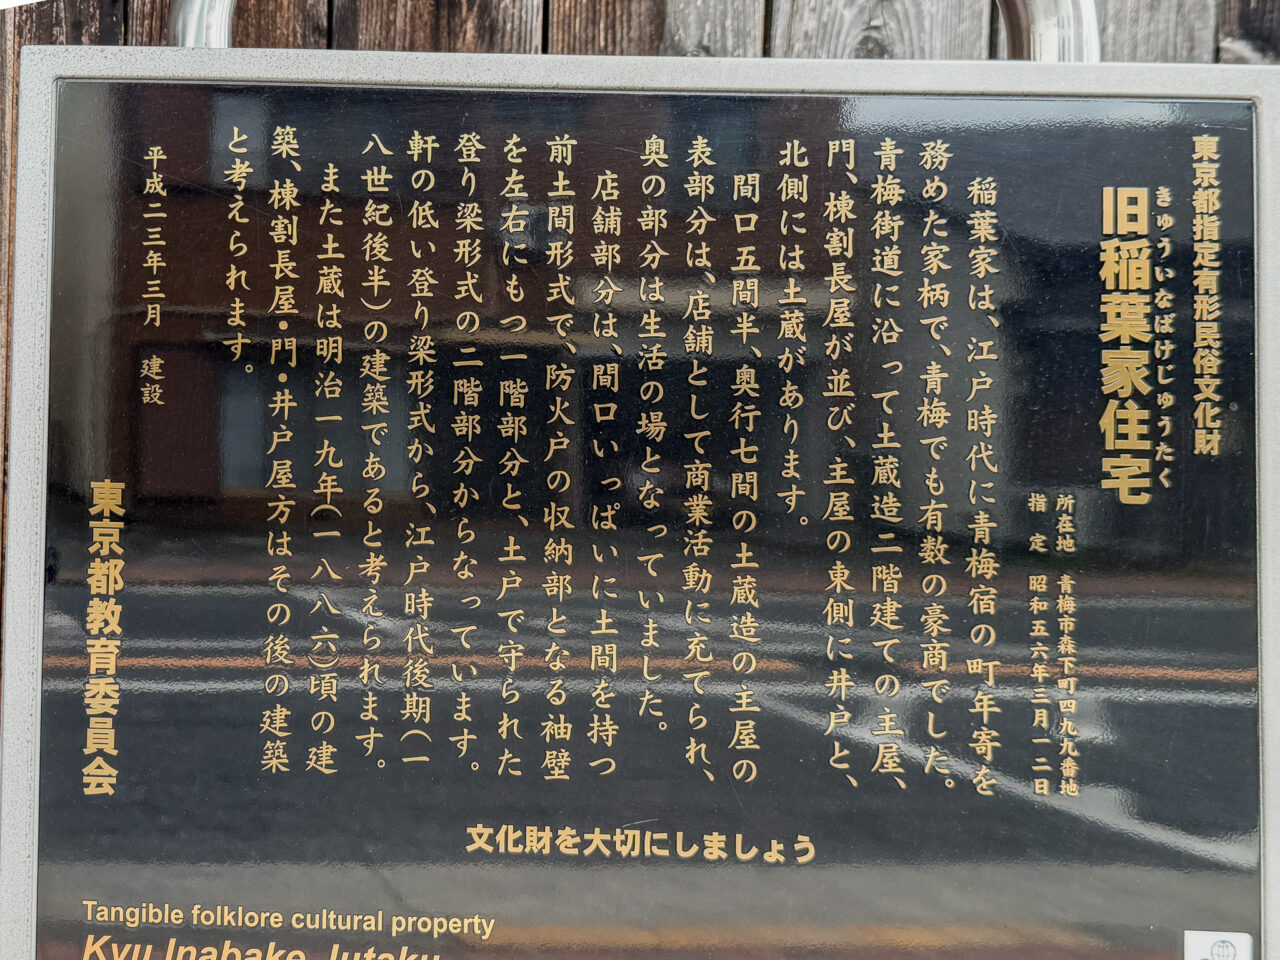 東京都指定有形民俗文化財
きゅういなばけじゅうたく
旧稲葉家住宅
所在地 青梅市森下町四九九番地
指定 昭和五六年三月一二日
稲葉家は、江戸時代に青梅宿の町年寄を
務めた家柄で、青梅でも有数の豪商でした。
青梅街道に沿って土蔵造二階建ての主屋、
門、棟割長屋が並び、主屋の東側に井戸と、
北側には土蔵があります。
間口五間半、奥行七間の土蔵造の主屋の
表部分は、店舗として商業活動に充てられ、
奥の部分は生活の場となっていました。
店舗部分は、間口いっぱいに土間を持つ
前土間形式で、防火戸の収納部となる袖壁
を左右にもつ一階部分と、土戸で守られた
登り梁形式の二階部分からなっています。
軒の低い登り梁形式から、江戸時代後期(一
八世紀後半)の建築であると考えられます。
また土蔵は明治一九年(一八八六)頃の建
築、棟割長屋・門・井戸屋方はその後の建築
と考えられます。
平成二三年三月 建設
東京都教育委員会
文化財を大切にしましょう
Tangible folklore cultural property
Kyu Inabake Jutaku